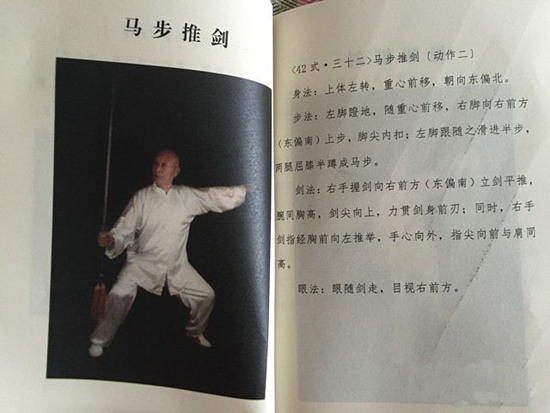 马步推剑
〈42式·三十二〉马步推剑（动作二）
身法：上体左转，重心前移，朝向东偏北。
步法：左脚蹬地，随重心前移，右脚向右前方
（东偏南）上步，脚尖内扣；左脚跟随之滑进半步，
两腿屈膝半蹲成马步。
剑法：右手握剑向右前方（东偏南）立剑平推，
腕同胸高，剑尖向上，力贯剑身前刃；同时，右手
剑指经胸前向左推举，手心向外，指尖向前与肩同
高。
眼法：眼随剑走，目视右前方。